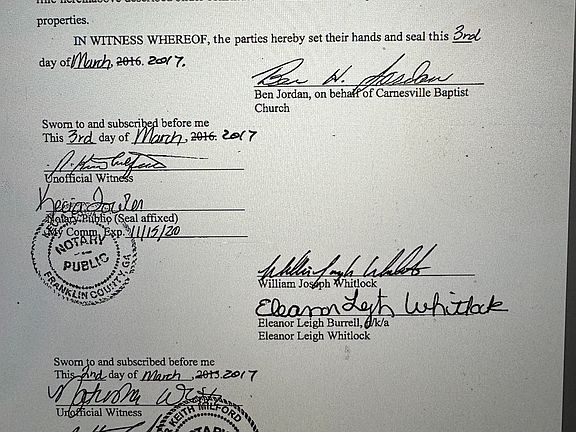 properties.
IN WITNESS WHEREOF, the parties hereby set their hands and seal this 3rd
day of March, 2016. 2017.
Ben H. Jordan
Ben Jordan, on behalf of Carnesville Baptist
Church
Sworn to and subscribed before me
This 3rd day of March, 2016. 2017
Unofficial Witness
Notary Public (Seal affixed)
My Comm. Exp. 11/15/20
NOTARY
PUBLIC
FRANKLIN COUNTY, GA
William Joseph Whitlock
William Joseph Whitlock
Eleanor Leigh Whitlock
Eleanor Leigh Burrell, f/k/a
Eleanor Leigh Whitlock
Sworn to and subscribed before me
This 2nd day of March, 2015. 2017
Unofficial Witness
KEITH MILFORD
NOTARY